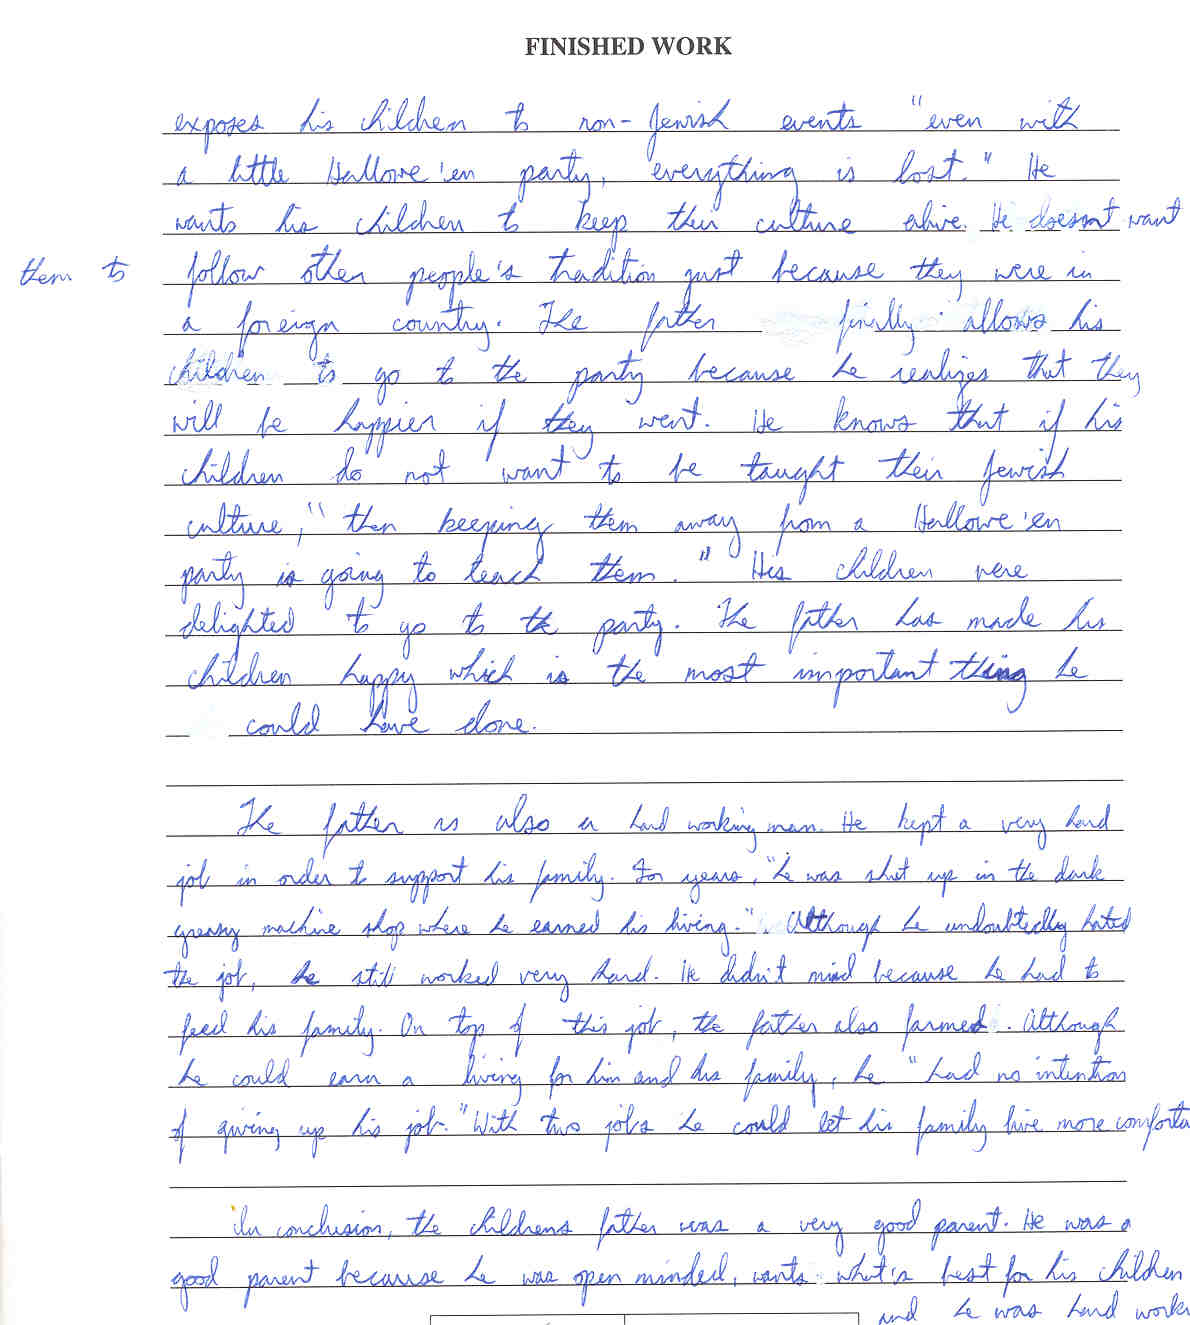 FINISHED WORK
exposes his children to non-Jewish events "even with
a little Hallowe'en party, everything is lost." He
wants his children to keep their culture alive. He doesn't want
them to follow other people's tradition just because they were in
a foreign country. The father finally allows his
children to go to the party because he realizes that they
will be happier if they went. He knows that if his
children do not want to be taught their Jewish
culture, "then keeping them away from a Hallowe'en
party is going to teach them." His children were
delighted to go to the party. The father has made his
children happy which is the most important thing he
could have done.
The father is also a hard working man. He kept a very hard
job in order to support his family. For years, "he was shut up in the dark
greasy machine shop where he earned his living." Although he undoubtedly hated
the job, he still worked very hard. He didn't mind because he had to
feed his family. On top of this job, the father also farmed. Although
he could earn a living for him and his family, he "had no intention
of giving up his job." With two jobs he could let his family live more comforta
In conclusion, the childrens father was a very good parent. He was a
good parent because he was open minded, wants what's best for his children
and he was hard work